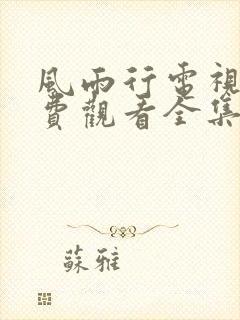 風雨行電視
費觀看全集
蘇雅